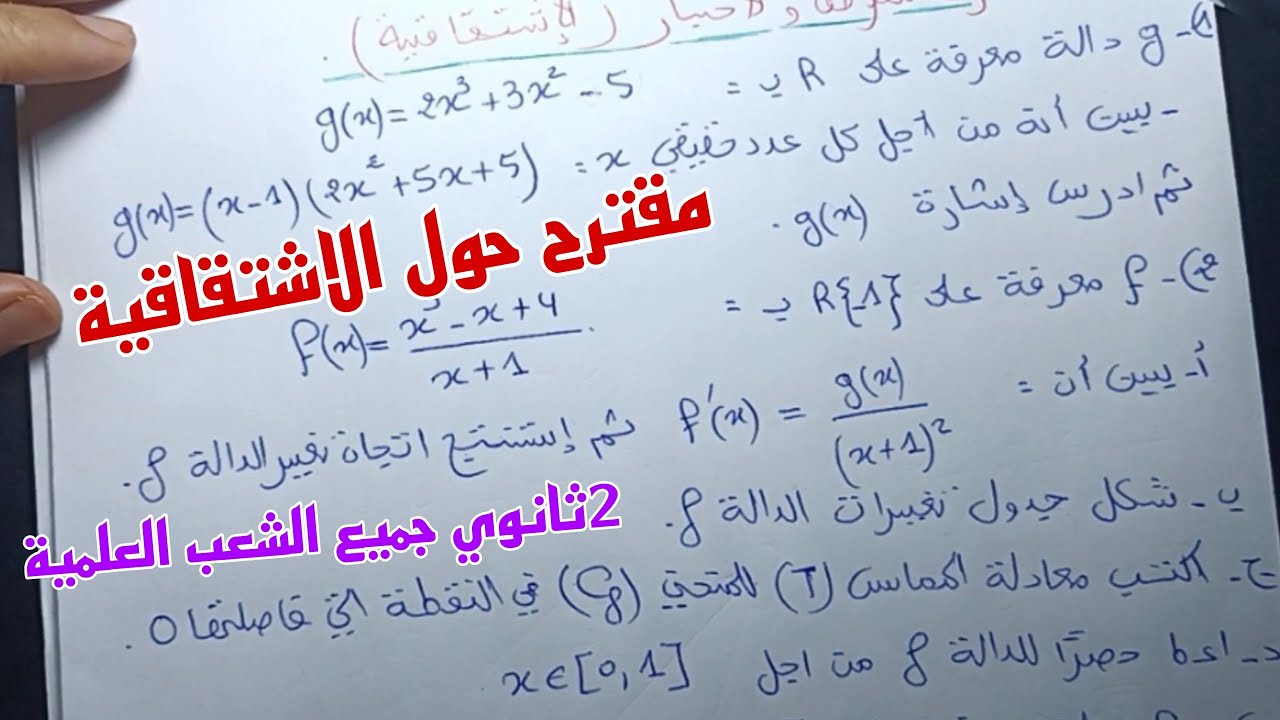 (الإشتقاقية).
1)- g دالة معرفة على R بـ = g(x)=2x³+3x²-5
- بيت أنه من أجل كل عدد حقيقي x = g(x)=(x-1)(2x²+5x+5)
ثم ادرس إشارة g(x).
مقترح حول الاشتقاقية
2)- f معرفة على R{-1} بـ = f(x)= x³-x+4 / x+1
أ- بيت أن = f'(x) = g(x) / (x+1)² ثم إستنتج اتجاه تغيير الدالة f.
2ثانوي جميع الشعب العلمية
ب- شكل جدول تغييرات الدالة f.
ج- اكتب معادلة المماس (T) للمنحني في النقطة التي فاصلتها 0.
د- اعط حصرًا للدالة f من اجل x∈[0,1]